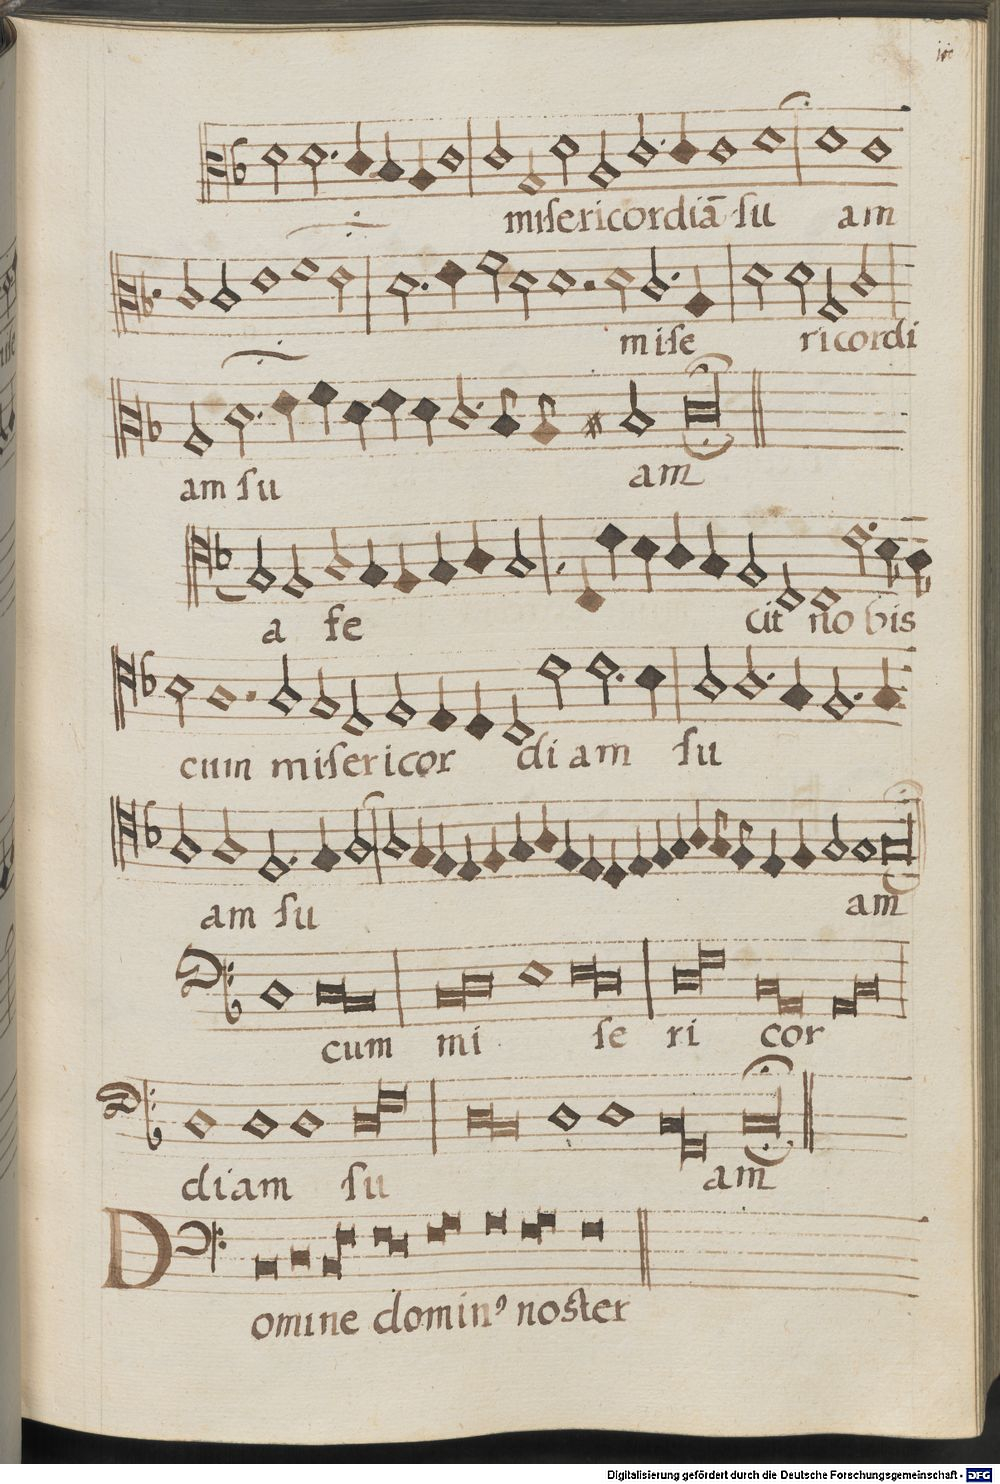 misericordiã su am
mise ricordi
am su am
a fe cit no bis
cum misericor di am su
am su am
cum mi se ri cor
diam su am
Domine dominꝰ noster
Digitalisierung gefördert durch die Deutsche Forschungsgemeinschaft - DFG